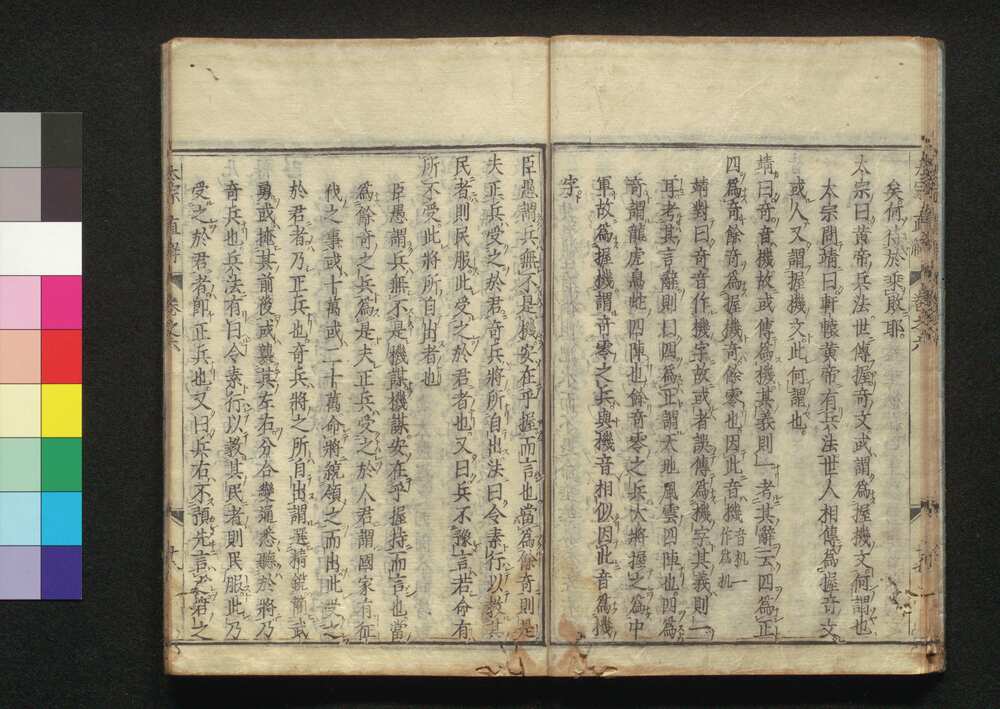 矣何待於乘敗耶
太宗曰黃帝兵法世傳握奇文或謂爲握機文何謂也
太宗問靖曰軒轅黃帝有兵法世人相傳爲握奇文
或人又謂握機文此何謂也
靖曰奇音機故或傳爲機其義則一考其辭云四爲正
四爲奇餘奇爲握機奇餘零也因此音機音机一作爲机
靖對曰奇音作機字故或者誤傳爲機字其義則一
耳考其言辭則曰四爲正謂天地風雲四陣也四爲
奇謂龍虎鳥蛇四陣也餘奇零之兵大將握之爲中
軍故爲握機謂奇零之兵與機音相似因此音爲機
字
臣愚謂兵無不是機安在乎握而言也當爲餘奇則是
夫正兵受之於君奇兵將所自出法曰令素行以教其
民者則民服此受之於君者也又曰兵不豫言君命有
所不受此將所自出者也
臣愚謂兵無不是機謀機謀安在乎握持而言也當
爲餘奇之兵爲是夫正兵受之於人君謂國家有征
伐之事或十萬或二十萬命將統領之而出此受之
於君者乃正兵也奇兵將之所自出謂選精銳簡武
勇或掩其前後或襲其左右分合變通悉聽於將乃
奇兵也兵法有曰令素行以教其民者則民服此乃
受之於君者卽正兵也又曰兵右不預先言人君之